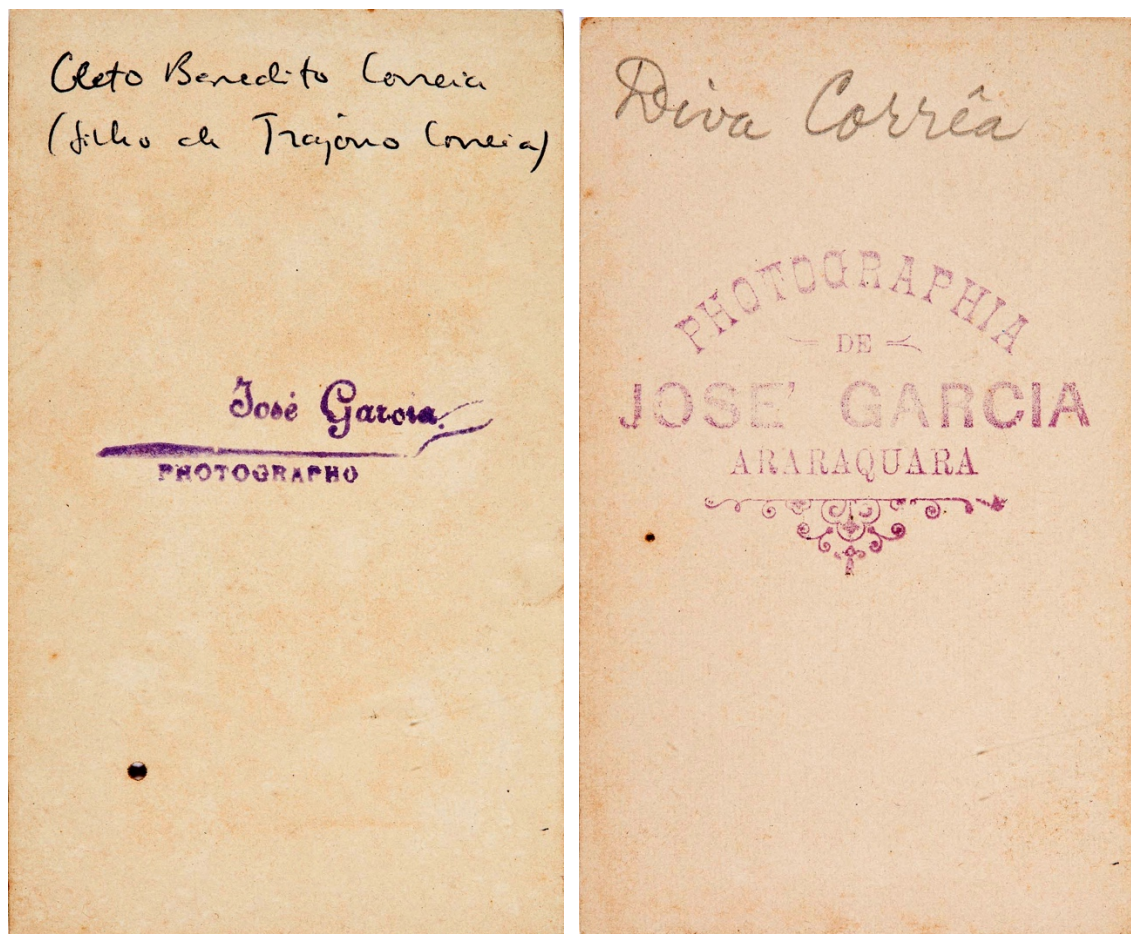 Cleto Benedito Correia
(filho de Trajano Correia)
José Garcia.
PHOTOGRAPHO
Diva Corrêa
PHOTOGRAPHIA
DE
JOSE' GARCIA
ARARAQUARA